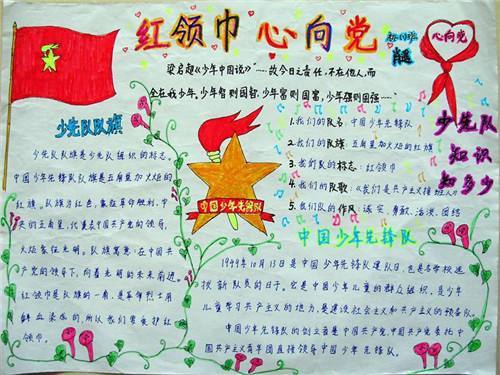 红领巾 心向党
心向党
梁启超《少年中国说》“……故今日之责任,不在他人,而
全在我少年。少年智则国智,少年富则国富,少年强则国强……”
少先队队旗
少先队队旗是少先队组织的标志。
中国少年先锋队队旗是五角星加火炬的
红旗。队旗为红色,象征革命胜利,中
央的五角星,代表中国共产党的领导,
火炬象征光明。队旗寓意:在中国共
产党的领导下,向着光明的未来前进。
红领巾是队旗的一角,是革命烈士用
鲜血染成的,所以我们要爱护红
领巾。
中国少年先锋队
1.我们的队名:中国少年先锋队
2.我们的队旗:五角星加火炬的红旗
3.我们队的标志:红领巾
4.我们的队歌:《我们是共产主义接班人》
5.我们队的作风:诚实、勇敢、活泼、团结
少先队
知识
知多少
中国少年先锋队
1949年10月13日是中国少年先锋队建队日,也是各学校选
拔新队员的日子。它是中国少年儿童的群众组织,是少年
儿童学习共产主义的地方,是建设社会主义和共产主义的预备队。
中国少年先锋队的创立者是中国共产党,中国共产党委托中
国共产主义青年团直接领导中国少年先锋队。